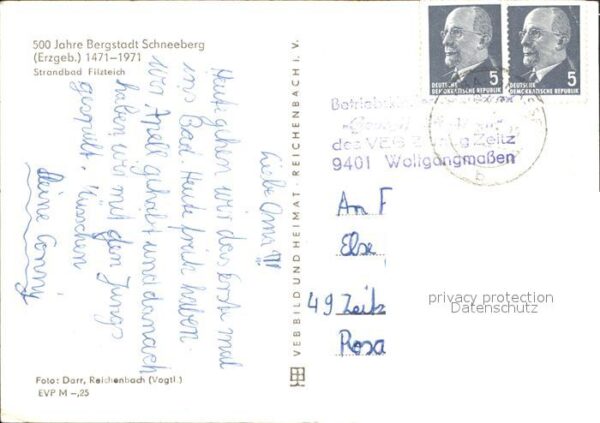 500 Jahre Bergstadt Schneeberg
(Erzgeb.) 1471–1971
Strandbad Filzteich
Liebe Oma!!!
Heute gehen wir das erste mal
ins Bad. Heute früh haben
wir Apell gehabt und danach
haben wir mit den Jungs
gespielt. Küsschen
Deine Conny
Foto: Darr, Reichenbach (Vogtl.)
EVP M –,25
VEB BILD UND HEIMAT · REICHENBACH I. V.
DEUTSCHE
DEMOKRATISCHE REPUBLIK 5
DEUTSCHE
DEMOKRATISCHE REPUBLIK 5
des VEB Zeitz
9401 Wolfgangmaßen
b
An F
Else
49 Zeitz
Rosa
privacy protection
Datenschutz